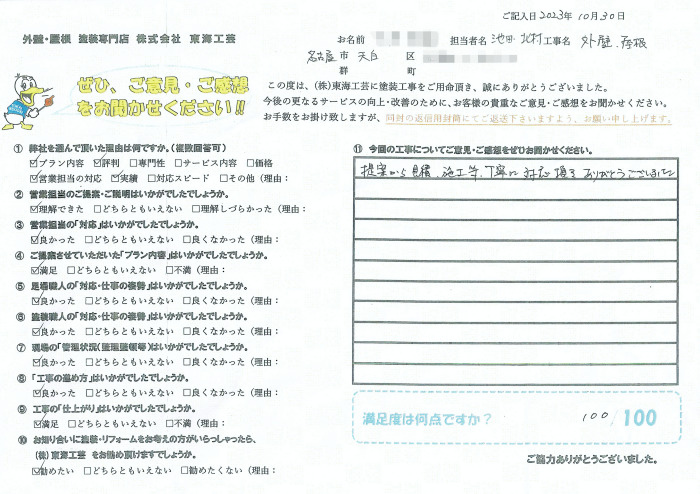 ご記入日 2023年 10月30日
外壁・屋根 塗装専門店 株式会社 東海工芸
お名前
担当者名 池田 北村 工事名 外壁、屋根
名古屋 市 天白 区
郡 町
ぜひ、ご意見・ご感想
をお聞かせください!!
この度は、(株)東海工芸に塗装工事をご用命頂き、誠にありがとうございました。
今後の更なるサービスの向上・改善のために、お客様の貴重なご意見・ご感想をお聞かせください。
お手数をお掛け致しますが、同封の返信用封筒にてご返送下さいますよう、お願い申し上げます。
① 弊社を選んで頂いた理由は何ですか。(複数回答可)
☑プラン内容 ☑評判 □専門性 □サービス内容 □価格
☑営業担当の対応 ☑実績 □対応スピード □その他(理由:
② 営業担当のご提案・ご説明はいかがでしたでしょうか。
☑理解できた □どちらともいえない □理解しづらかった(理由:
③ 営業担当の「対応」はいかがでしたでしょうか。
☑良かった □どちらともいえない □良くなかった(理由:
④ ご提案させていただいた「プラン内容」はいかがでしたでしょうか。
☑満足 □どちらともいえない □不満(理由:
⑤ 足場職人の「対応・仕事の姿勢」はいかがでしたでしょうか。
☑良かった □どちらともいえない □良くなかった(理由:
⑥ 塗装職人の「対応・仕事の姿勢」はいかがでしたでしょうか。
☑良かった □どちらともいえない □良くなかった(理由:
⑦ 現場の「管理状況(監理監督等)はいかがでしたでしょうか。
☑良かった □どちらともいえない □良くなかった(理由:
⑧ 「工事の進め方」はいかがでしたでしょうか。
☑良かった □どちらともいえない □良くなかった(理由:
⑨ 工事の「仕上がり」はいかがでしたでしょうか。
☑満足 □どちらともいえない □不満(理由:
⑩ お知り合いに塗装・リフォームをお考えの方がいらっしゃったら、
(株)東海工芸 をお勧め頂けますでしょうか。
☑勧めたい □どちらともいえない □勧めたくない(理由:
⑪ 今回の工事についてご意見・ご感想をぜひお聞かせください。
提案から見積、施工等、丁寧に対応頂き ありがとうございました
満足度は何点ですか? 100/100
ご協力ありがとうございました。